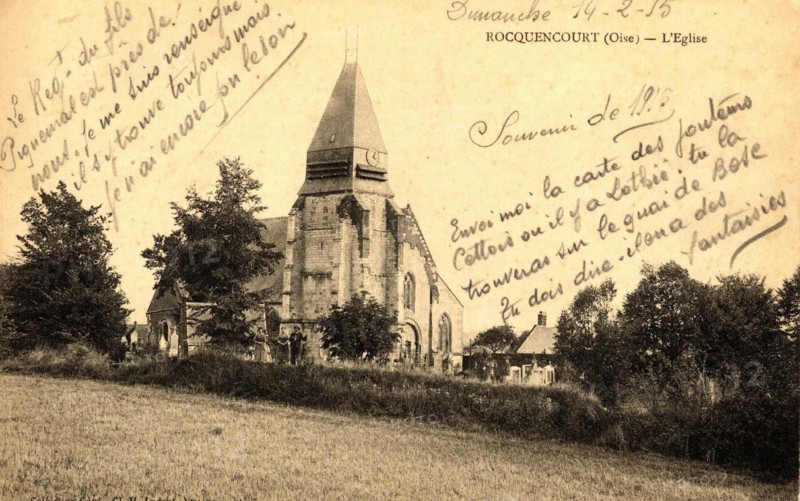 Dimanche 14-2-15
ROCQUENCOURT (Oise) — L'Eglise
Le Regt du fils
Piguemal est près de
nous. Je me suis renseigné!
il s'y trouve toujours mais
je n'ai encore pu le voir
Souvenir de 1915
Envoi moi la carte des
Cettois où il y a Lothie: tu la
trouveras sur le quai de Bosc
Tu dois dire - il en a des
fantaisies
Collection